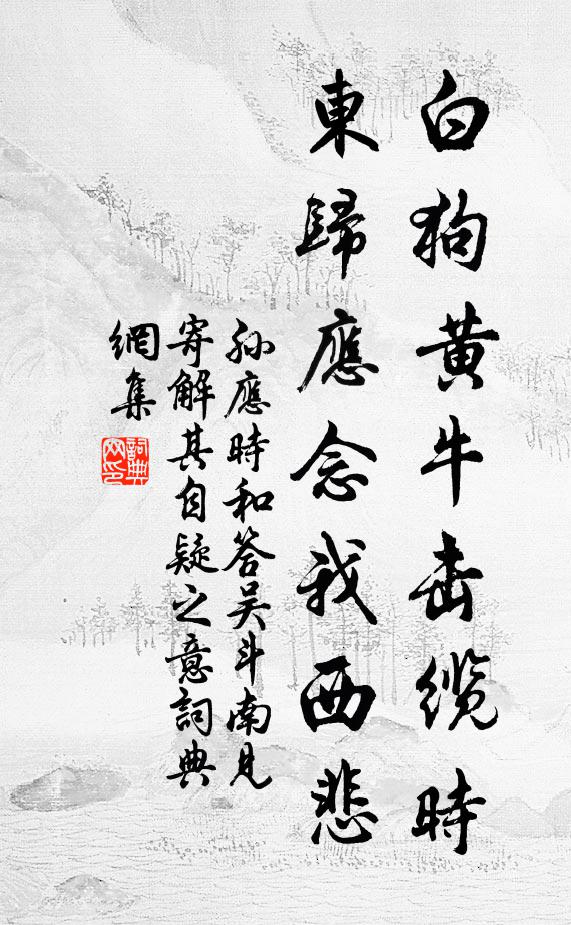 白狗黄牛击缆時
東歸應念我西悲
孙應時和答吴斗南見
寄解其自疑之意詞典
網集
詞典
网印